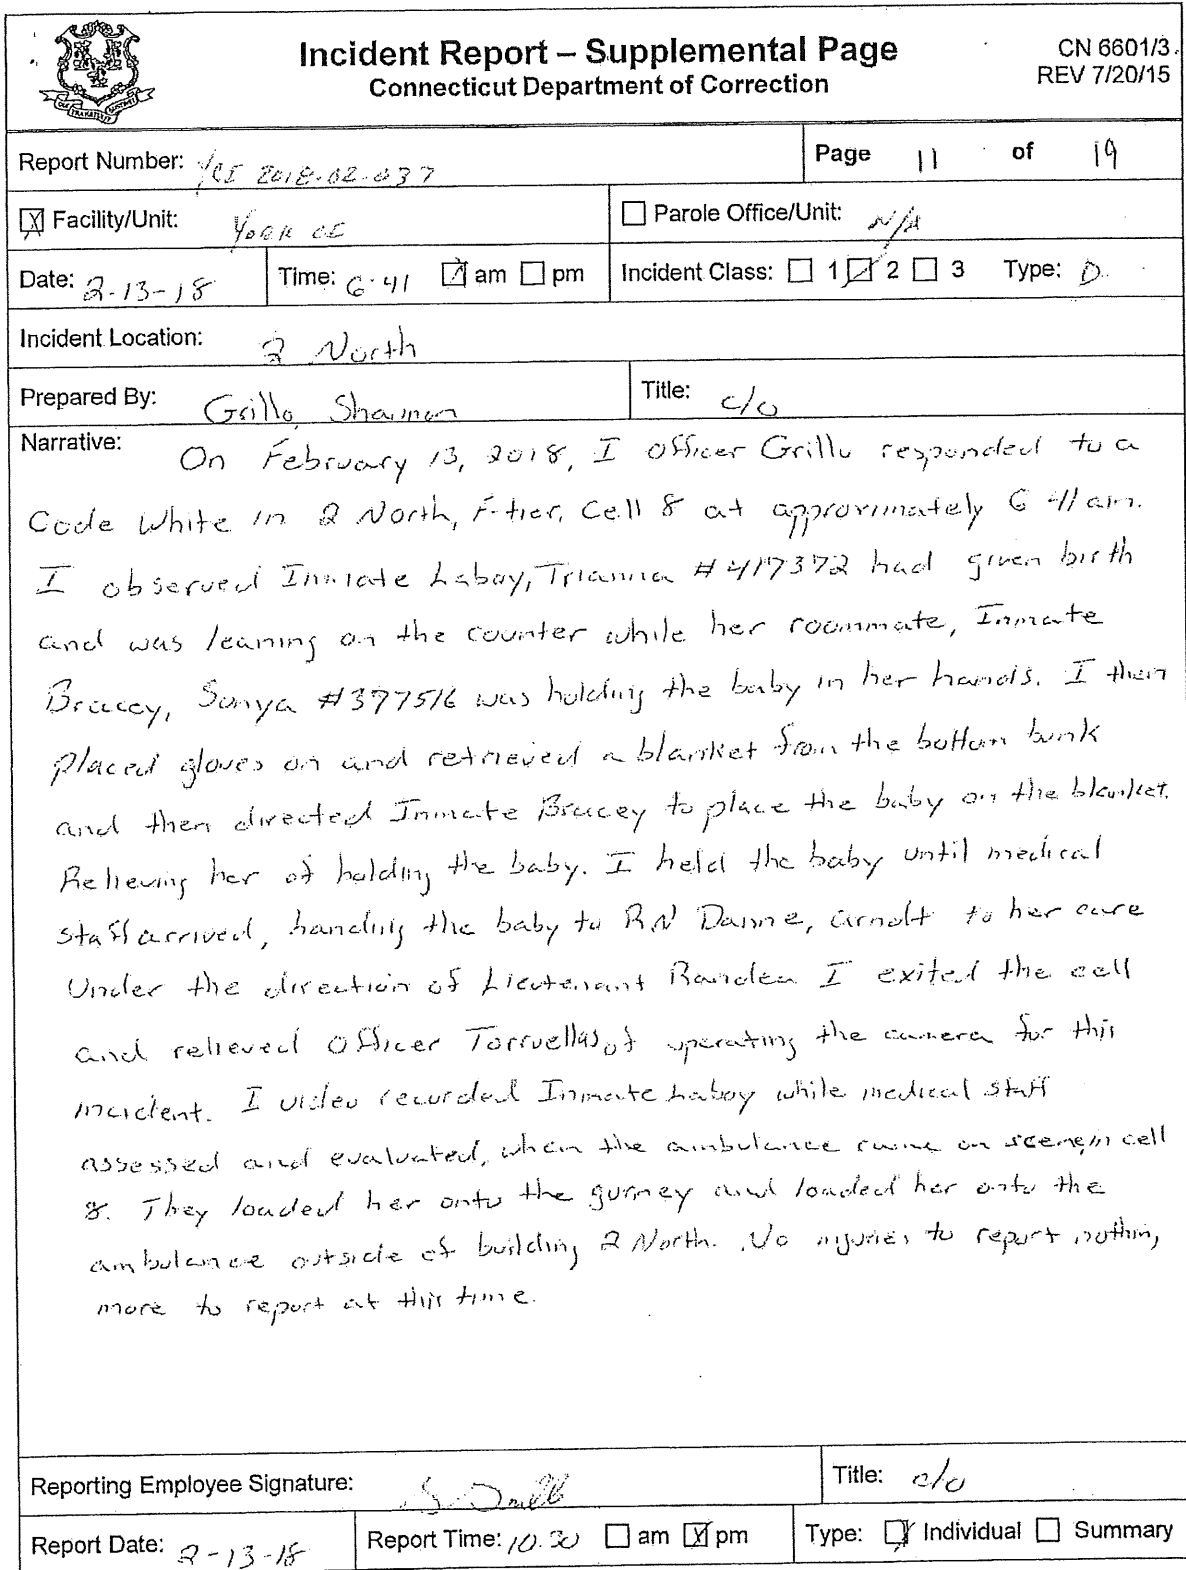 Incident Report – Supplemental Page
Connecticut Department of Correction
CN 6601/3
REV 7/20/15
Report Number: YCI 2018-02-037
Page 11 of 19
Facility/Unit: York CI
Parole Office/Unit: N/A
Date: 2-13-18
Time: 6:41 am pm
Incident Class: 1 2 3 Type: D
Incident Location: 2 North
Prepared By: Grillo, Shannon
Title: c/o
Narrative: On February 13, 2018, I Officer Grillo responded to a
Code White in 2 North, F-tier, Cell 8 at approximately 6 41 am.
I observed Inmate Laboy, Trianna #417372 had given birth
and was leaning on the counter while her roommate, Inmate
Bracey, Sonya #377516 was holding the baby in her hands. I then
placed gloves on and retrieved a blanket from the bottom bunk
and then directed Inmate Bracey to place the baby on the blanket.
Relieving her of holding the baby. I held the baby until medical
staff arrived, handing the baby to RN Danne, to her care
Under the direction of Lieutenant I exited the cell
and relieved Officer Torruellas of operating the camera for this
incident. I video recorded Inmate Laboy while medical staff
assessed and evaluated, when the ambulance came on scene in cell
8. They loaded her onto the gurney and loaded her onto the
ambulance outside of building 2 North. No injuries to report nothing
more to report at this time.
Reporting Employee Signature:
Title: c/o
Report Date: 2-13-18
Report Time: 10:30 am pm
Type: Individual Summary